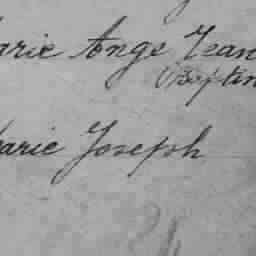 arie Ange Jean
Baptis
arie Joseph